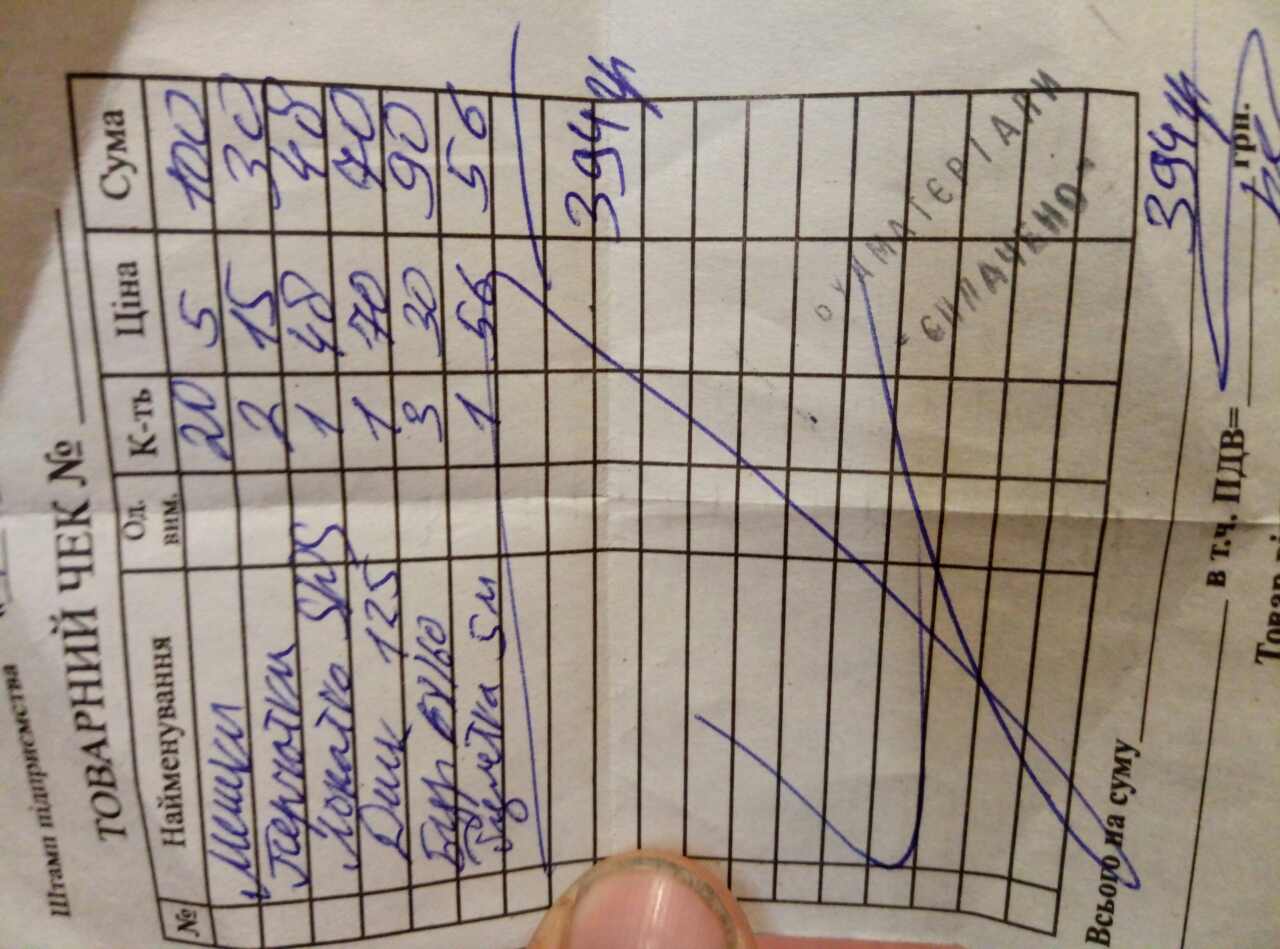 Штамп підприємства
ТОВАРНИЙ ЧЕК №
№ Найменування Од. вим. К-ть Ціна Сума
Мешки 20 5 100
Перчотки 2 15 30
Лопатка SDS 1 48 48
Диск 125 1 70 70
Бур 6х160 3 30 90
Рулетка 5м 1 56 56
394
МАТЕРІАЛИ
СПЛАЧЕНО
Всього на суму 394
в т.ч. ПДВ= грн.
Товар